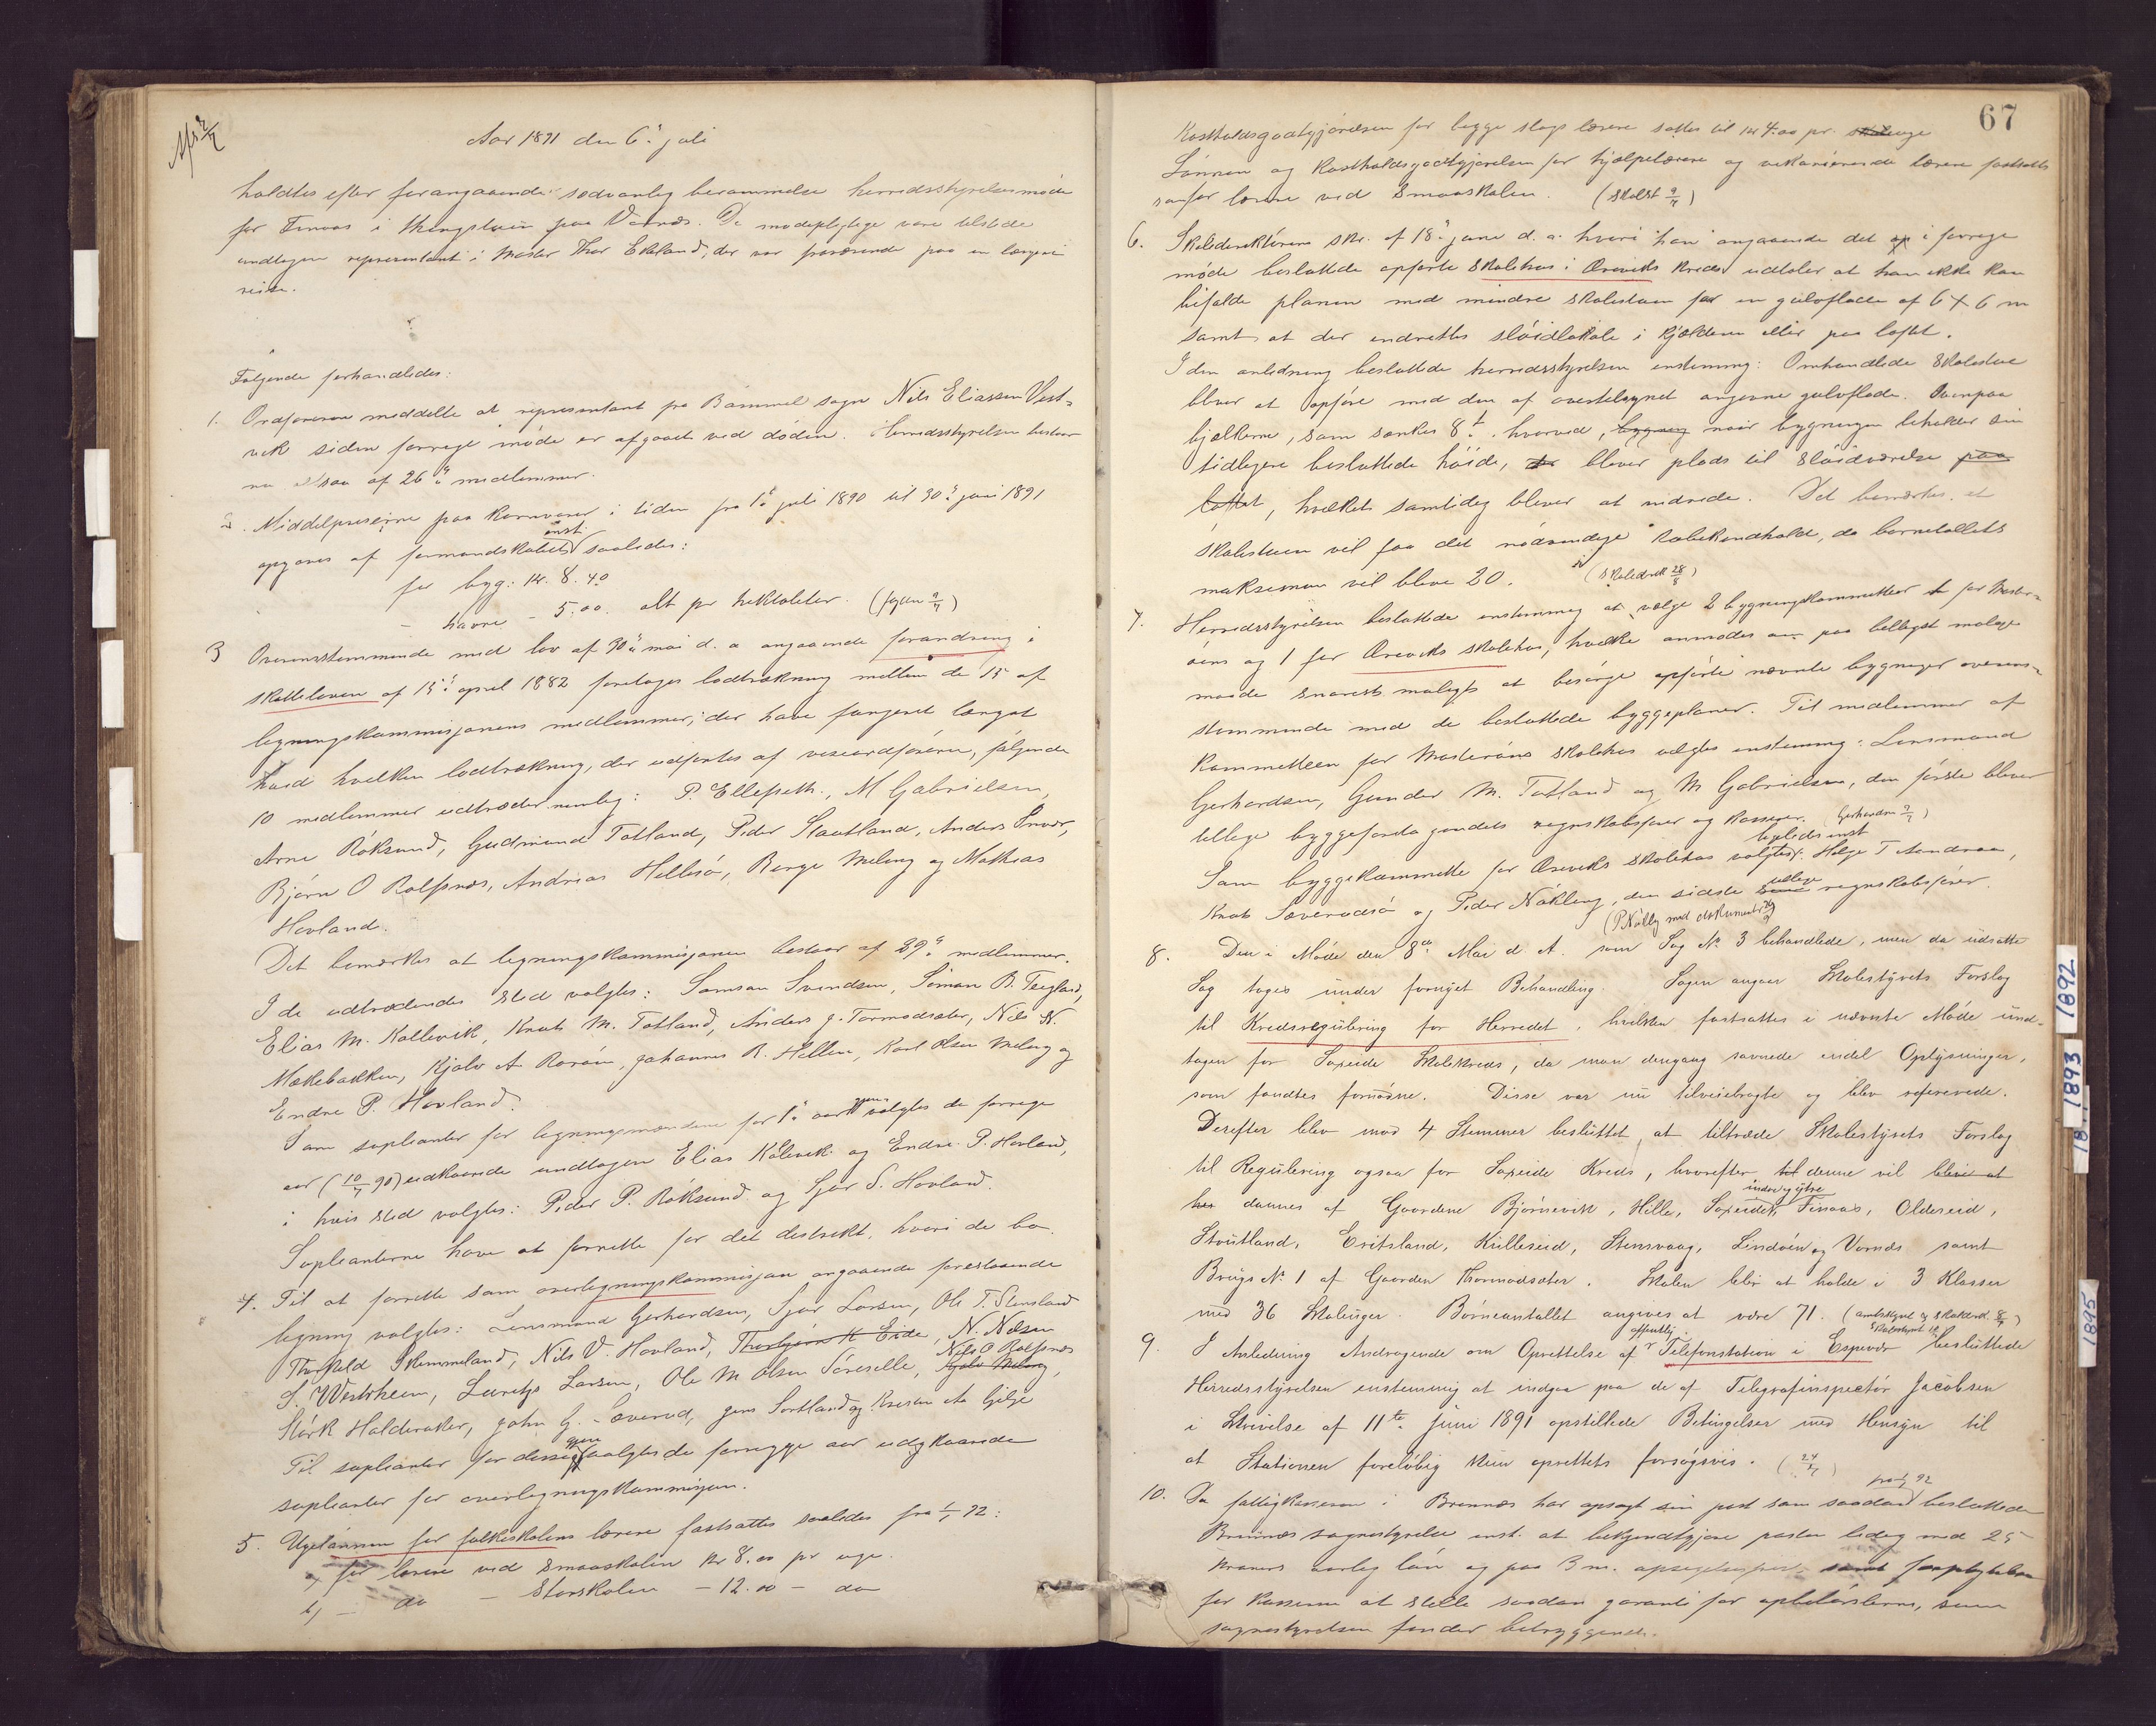 Aar 1891 den 6te juli
holdtes efter forangaaende sædvanlig berammelse herredsstyrelsesmøde
for Finaas i thingstuen paa Vornæs. De mødepligtige vare tilstede
undtagen repræsentant i Moster Thor Ekeland, der var fraværende paa en længere
reise.
Følgende forhandledes:
1. Ordføreren meddelte at repræsentant fra Bømmel sogn Nils Eliassen Vest-
vik siden forrige møde er afgaaet ved døden. Herredsstyrelsen bestaar
nu altsaa af 26 medlemmer.
2. Middelpriserne paa kornvarer i tiden fra 1te juli 1890 til 30te juni 1891
enst.
opgaves af formandskabet saaledes:
for byg: kr. 8.40
- havre - 5.00. alt pr hektoliter. (fogden 9/7)
3 Overensstemmende med lov af 30te mai d. a angaaende forandring i
skatteloven af 15de april 1882 foretoges lodtrækning mellem de 15 af
ligningskommisjonens medlemmer, der have fungeret længst
hvad hvilken lodtrækning, der udførtes af viceordføreren, følgende
10 medlemmer udtræder nemlig: P. Elleseth, M Gabrielsen,
Arne Røksund, Gudmund Totland, Peder Stautland, Anders Innvær,
Bjørn O Rolfsnæs, Andrias Hellesø, Børge Meling og Mathias
Hovland.
Det bemærkes at ligningskommisjonen bestaar af 29 medlemmer.
I de udtrædendes sted valgtes: Samson Svendsen, Simon B. Teigland,
Elias M. Kallevik, Knut M. Totland, Anders J. Tormodsæter, Nils N.
Mækebakken, Kjølv A Rorøen, Johannes R. Hellen, Karl Olsen Meling og
Endre P. Hovland.
Som suplianter for ligningsmændene for 1 aar gjenvalgtes de forrige
aar (10/7 90) udkaarede undtagen Elias Kålevik og Endre P. Hovland,
i hvis sted valgtes: Peder P. Røksund og Sjur S. Hovland.
Suplianterne have at forrette for det distrikt, hvori de bo.
4. Til at forrette som overligningskommisjon angaaende forestaaende
ligning valgtes: Lensmand Gerhardsen, Sjur Larsen, Ole T. Stensland
Thorkild Skimmeland, Nils V. Hovland, Thorbjørn K Eide, N. Nilsen
Nils O Rolfsnæs
S. Westrheim, Lauritz Larsen, Ole M Olsen Søreselle, Kjølv Meling,
Størk Halderaker, John G. Søverud, Jens Sortland og Kristen A Gilje
Til suplianter for disse gjenvalgtes de forrige aar udkaarede
suplianter for overligningskommisjon.
5. Ugelønnen for folkeskolens lærere fastsattes saaledes fra 1/1 92:
a, for lærere ved Smaaskolen kr 8.00 pr uge.
b, - do - Storskolen - 12.00 - do
67
Kostholdsgodtgjørelsen for begge slags lærere sattes til kr 4.00 pr. uge
Lønnen og kostholdsgodtgjørelsen for hjælpelærere og vikarierende lærere fastsattes
som for lærere ved Smaaskolen. (Skolest 9/7)
6. Skoledirektørens skr. af 18de juni d. a. hvori han angaaende det i forrige
møde besluttede opførte Skolehus i Ørevíks kreds udtaler at han ikke kan
bifalde planen med mindre skolestuen faar en gulvflade af 6 x 6 m
samt at der indrettes sløidlokale i kjælderen eller paa loftet.
I den anledning besluttede herredsstyrelsen enstemmig: Omhandlede Skolestue
bliver at opføre med den af overtilsynet angivne gulvflade. Ovenpaa
bjælkerne, som sænkes 8t., hvorved, bygning naar bygningen beholder sin
tidligere besluttede høide, bliver plads til Sløidværelse paa
loftet, hvilket samtidig bliver at indrede. Det bemærkes, at
skolestuen vil faa det nødvendige kubikindhold, da børnetallets
maksimum vil blive 20. (Skoledirek 28/8)
7. Herredsstyrelsen besluttede enstemmig at vælge 2 bygningskommitteer for Moster-
øens og 1 for Øreviks skolehus, hvilke anmodes om paa billigst mulige
maade snarest muligt at besørge opførte nævnte bygninger overens-
stemmende med de besluttede byggeplaner. Til medlemmer af
kommitteen for Mosterøens skolehus valgtes enstemmig: Lensmand
Gerhardsen, Gunder M. Totland og M Gabrielsen, den første bliver
tillige byggeforetagendets regnskabsfører og kasserer. (Gerhardsn 9/7)
ligeledes enst
Som byggekommitte for Øreviks skolehus valgtes: Helge T Aandraa,
Knut Søverudsø og Peder Nøkling, den sidste tillige regnskabsfører.
(P Nøklg med dokumenter)
8. Den i Møde den 8de Mai d. A. som Sag No 3 behandlede, men da udsatte
Sag toges under fornyet Behandling. Sagen angaar Skolestyrets Forslag
til Kredsregulering for Herredet, hvilken fastsattes i nævnte Møde und-
tagen for Søreide Skolekreds, da man dengang savnede endel Oplysninger,
som fandtes fornødne. Disse var nu tilveiebragte og blev refererede.
Derefter blev mod 4 Stemmer besluttet, at tiltræde Skolestyrets Forslag
til Regulering ogsaa for Søreide Kreds, hvorefter til denne vil blive at
indre og ytre
her dannes af Gaardene Bjørnevik, Hille, Søreidet, Finaas, Oldereid,
Stoutland, Eritsland, Kulleseid, Stensvaag, Lindøen og Vornæs samt
Brugs No 1 af Gaarden Thormodsæter. Skolen blir at holde i 3 Klasser
med 36 Skoleuger. Børneantallet angives at være 71. (amtskynt og Skoledirek. 8/7)
Skolestyret
offentlig
9. I Anledning Andragende om Oprettelse af Telefonstation i Espevær besluttede
Herredsstyrelsen enstemmig at indgaa paa de af Telegrafinspectør Jacobsen
i Skrivelse af 11te Juni 1891 opstillede Betingelser med Hensyn til
at Stationen foreløbig kun oprettets forsøgsvis. (24/7)
fra 1/1 92
10. Da fattigkassereren i Bremnæs har opsagt sin post som saadan besluttede
Bremnæs sognestyrelse enst. at bekjendtgjøre posten ledig med 25
kroners aarlig løn og paa 3 m. opsigelsesfrist samt forpligtelse
for kassereren at stille saadan garanti for opbelørslerne, som
sognestyrelsen finder betryggende.
1892
18 1893
1895